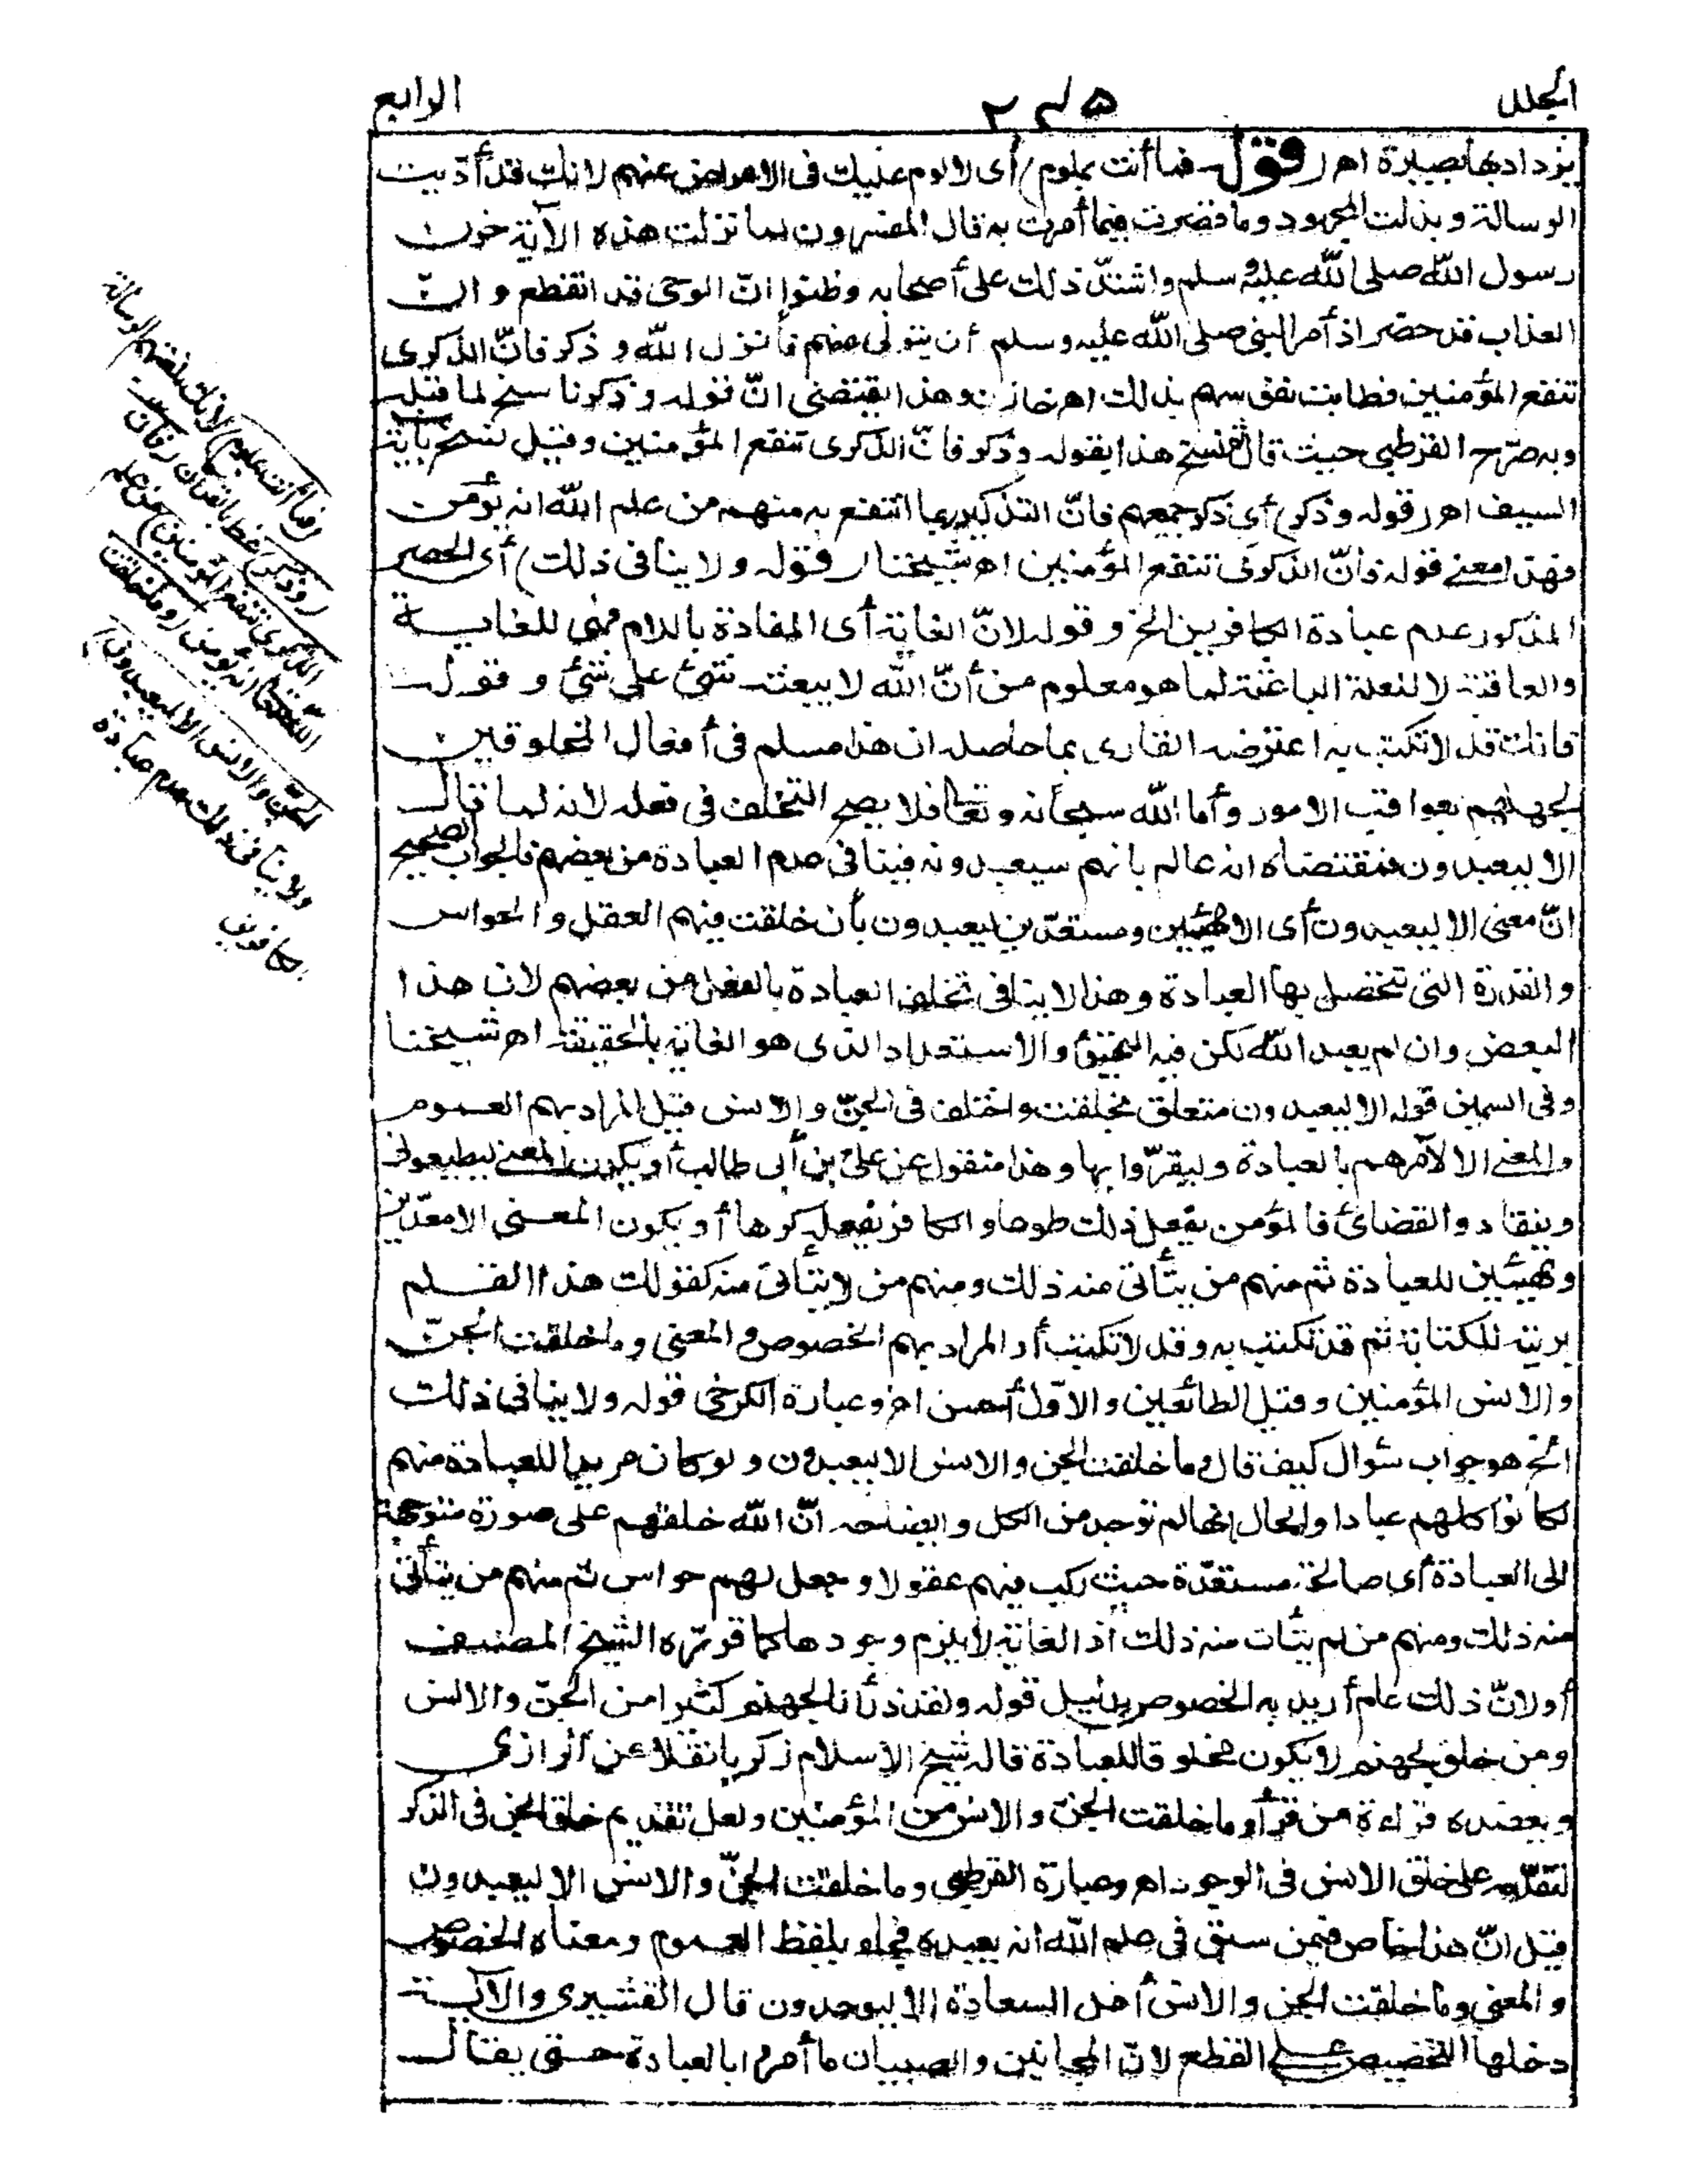 المجلد
٢٣٥
الرابع
يزدادبها بصيرة اهر (قوله فما أنت بملوم) أى لا لوم عليك فى الاعراض عنهم لانك قد أديت
الرسالة وبذلت المجهود وما قصرت فيما أمرت به قال المفسرون لما نزلت هذه الآية حزن
رسول الله صلى الله عليه وسلم واشتد ذلك على أصحابه وظنوا انّ الوحى قد انقطع وانّ
العذاب قد حضر اذ أمر النبى صلى الله عليه وسلم أن يتولى عنهم فأنزل الله وذكر فانّ الذكرى
تنفع المؤمنين فطابت نفوسهم بذلك اهر خازن وهذا يقتضى انّ قوله وذكر ناسخ لما قبله
وبه صرّح القرطبى حيث قال نسخ هذا بقوله وذكر فانّ الذكرى تنفع المؤمنين وقيل نسخ بآية
السيف اهر (قوله وذكر) أى ذكر جميعهم فانّ التذكير ربما انتفع به منهم من علم الله انه يؤمن
فهذا معنى قوله فانّ الذكرى تنفع المؤمنين اهر شيخنا (قوله ولا ينافى ذلك) أى الحصر
المذكور عدم عبادة الكافرين الخ وقوله لانّ الغاية أى المفادة باللام فهى للغاية
والعاقبة لا للعلة الباعثة لما هو معلوم من أنّ الله لا يبعثه شئ على شئ وقوله
فانك قد لا تكتب به اعترضه القارى بما حاصله ان هذا مسلم فى أفعال المخلوقين
لجهلهم بعواقب الامور وأما الله سبحانه وتعالى فلا يصح التخلف فى فعله لانه لما قال
الا ليعبدون فمقتضاه انه عالم بانهم سيعبدونه فينافى عدم العبادة من بعضهم فالجواب الصحيح
انّ معنى الا ليعبدون أى الا مهيئين ومستعدّين ليعبدون بأن خلقت فيهم العقل والحواس
والقدرة التى تتحصل بها العبادة وهذا لا ينافى تخلف العبادة بالفعل من بعضهم لان هذا
البعض وان لم يعبد الله لكن فيه التهيؤ والاستعداد الذى هو الغاية بالحقيقة اهر شيخنا
وفى السمين قوله الا ليعبدون متعلق بخلقت واختلف فى الجنّ والانس قيل المراد بهم العموم
والمعنى الا لآمرهم بالعبادة وليقرّوا بها وهذا منقول عن علىّ بن أبى طالب أو يكون المعنى ليطيعونى
وينقادوا لقضائى فالمؤمن يفعل ذلك طوعا والكافر يفعله كرها أو يكون المعنى الا معدّين
ومهيئين للعبادة ثم منهم من يتأتى منه ذلك ومنهم من لا يتأتى منه كقولك هذا القلم
بريته للكتابة ثم قد تكتب به وقد لا تكتب أو المراد بهم الخصوص والمعنى وما خلقت الجنّ
والانس المؤمنين وقيل الطائعين والاوّل أحسن اهر وعبارة الكرخى قوله ولا ينافى ذلك
الخ هو جواب سؤال كيف قال وما خلقت الجن والانس الا ليعبدون ولو كان مريدا للعبادة منهم
لكانوا كلهم عبادا والحال انها لم توجد من الكل وايضاحه انّ الله خلقهم على صورة متوجهة
الى العبادة أى صالحة مستعدّة حيث ركب فيهم عقولا وجعل لهم حواس ثم منهم من يتأتى
منه ذلك ومنهم من لم يتأت منه ذلك اذ الغاية لا يلزم وجودها كما قرّره الشيخ المصنف
أو لانّ ذلك عام أريد به الخصوص بدليل قوله ولقد ذرأنا لجهنم كثيرا من الجنّ والانس
ومن خلق لجهنم لا يكون مخلوقا للعبادة قاله شيخ الاسلام زكريا نقلا عن الرازى
ويعضده قراءة من قرأ وما خلقت الجنّ والانس من المؤمنين ولعل تقديم خلق الجن فى الذكر
لتقدّمه على خلق الانس فى الوجود اهر وعبارة القرطبى وما خلقت الجنّ والانس الا ليعبدون
قيل انّ هذا خاص فيمن سبق فى علم الله انه يعبده فجاء بلفظ العموم ومعناه الخصوص
والمعنى وما خلقت الجن والانس أهل السعادة الا ليوحدون قال القشيرى والآية
دخلها التخصيص على القطع لانّ المجانين والصبيان ما أمروا بالعبادة حتى يقال
(فما أنت بملوم) لانك بلغتهم الرسالة
(وذكر) عظ بالقرآن (فانّ
الذكرى تنفع المؤمنين) من علم
الله تعالى انه يؤمن (وما خلقت
الجنّ والانس الا ليعبدون)
ولا ينافى ذلك عدم عبادة
الكافرين